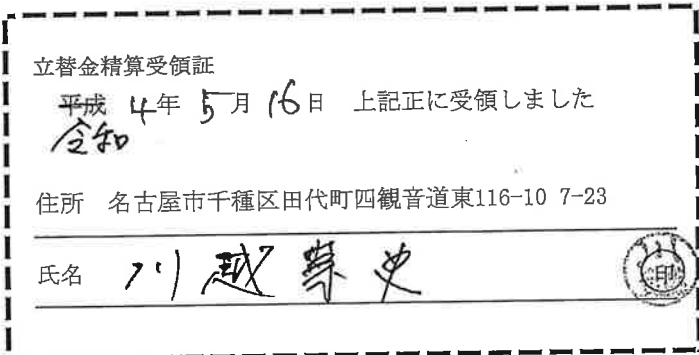 立替金精算受領証
平成 4年 5月 16日 上記正に受領しました
令和
住所 名古屋市千種区田代町四観音道東116-10 7-23
氏名 川越 史 印